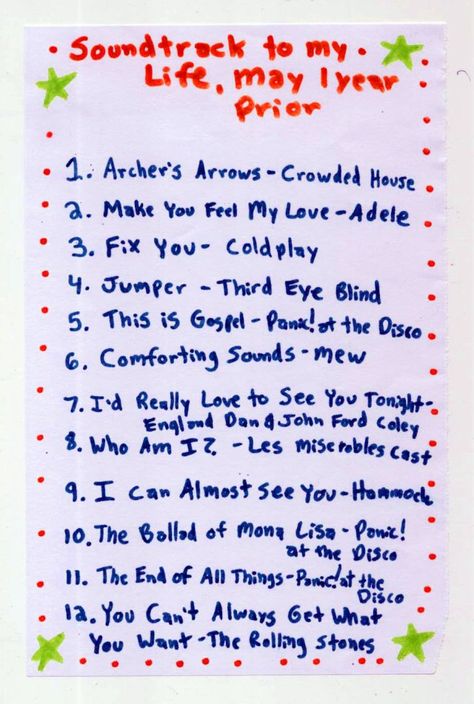 Soundtrack to my
Life, May 1 year
Prior
1. Archer's Arrows - Crowded House
2. Make You Feel My Love - Adele
3. Fix You - Coldplay
4. Jumper - Third Eye Blind
5. This is Gospel - Panic! at the Disco
6. Comforting Sounds - Mew
7. I'd Really Love to See You Tonight -
England Dan & John Ford Coley
8. Who Am I? - Les Miserobles Cast
9. I Can Almost See You - Hammock
10. The Ballad of Mona Lisa - Panic!
at the Disco
11. The End of All Things - Panic! at the
Disco
12. You Can't Always Get What
You Want - The Rolling Stones